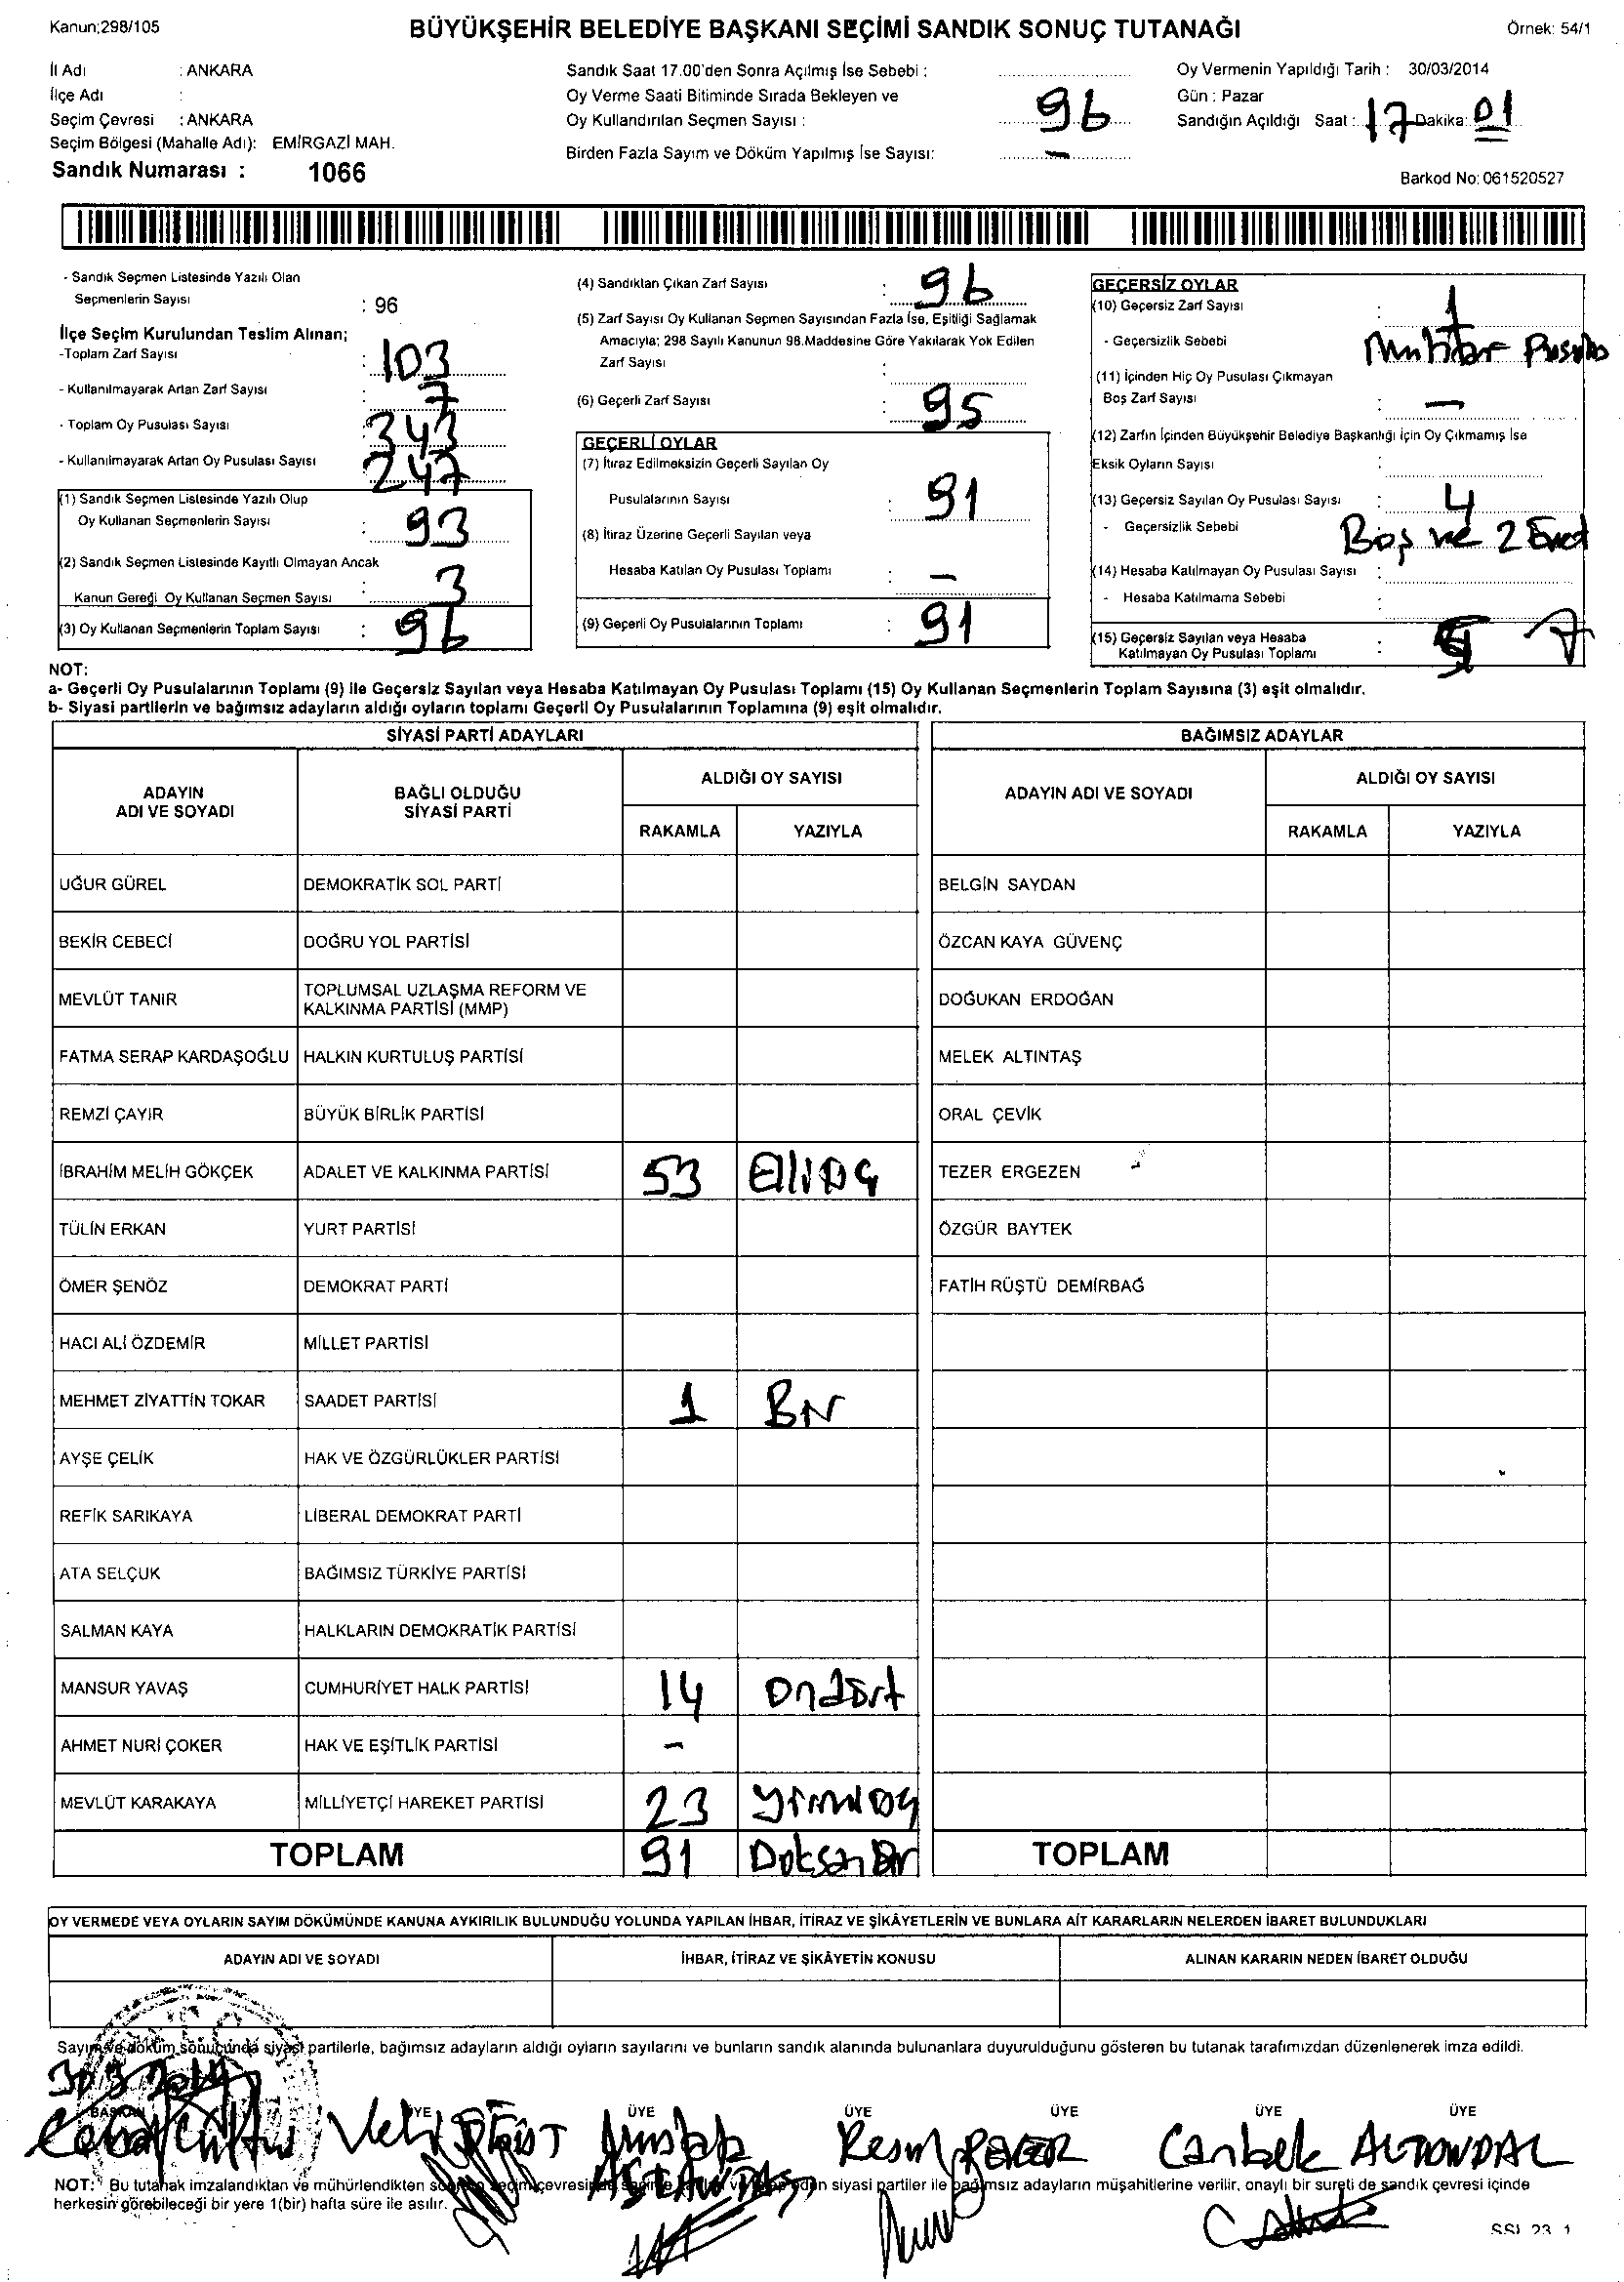 Kanun:298/105
BÜYÜKŞEHİR BELEDİYE BAŞKANI SEÇİMİ SANDIK SONUÇ TUTANAĞI
Örnek: 54/1
İl Adı : ANKARA
İlçe Adı :
Seçim Çevresi : ANKARA
Seçim Bölgesi (Mahalle Adı): EMİRGAZİ MAH.
Sandık Numarası : 1066
Sandık Saat 17.00'den Sonra Açılmış İse Sebebi :
Oy Verme Saati Bitiminde Sırada Bekleyen ve
Oy Kullandırılan Seçmen Sayısı : 96
Birden Fazla Sayım ve Döküm Yapılmış İse Sayısı: -
Oy Vermenin Yapıldığı Tarih : 30/03/2014
Gün : Pazar
Sandığın Açıldığı Saat : 17 Dakika: 01
Barkod No: 061520527
- Sandık Seçmen Listesinde Yazılı Olan
Seçmenlerin Sayısı : 96
İlçe Seçim Kurulundan Teslim Alınan;
-Toplam Zarf Sayısı : 103
- Kullanılmayarak Artan Zarf Sayısı : 7
- Toplam Oy Pusulası Sayısı : 343
- Kullanılmayarak Artan Oy Pusulası Sayısı : 247
(1) Sandık Seçmen Listesinde Yazılı Olup
Oy Kullanan Seçmenlerin Sayısı : 93
(2) Sandık Seçmen Listesinde Kayıtlı Olmayan Ancak
Kanun Gereği Oy Kullanan Seçmen Sayısı : 3
(3) Oy Kullanan Seçmenlerin Toplam Sayısı : 96
(4) Sandıktan Çıkan Zarf Sayısı : 96
(5) Zarf Sayısı Oy Kullanan Seçmen Sayısından Fazla İse, Eşitliği Sağlamak
Amacıyla; 298 Sayılı Kanunun 98.Maddesine Göre Yakılarak Yok Edilen
Zarf Sayısı :
(6) Geçerli Zarf Sayısı : 95
GEÇERLİ OYLAR
(7) İtiraz Edilmeksizin Geçerli Sayılan Oy
Pusulalarının Sayısı : 91
(8) İtiraz Üzerine Geçerli Sayılan veya
Hesaba Katılan Oy Pusulası Toplamı : -
(9) Geçerli Oy Pusulalarının Toplamı : 91
GEÇERSİZ OYLAR
(10) Geçersiz Zarf Sayısı : 1
- Geçersizlik Sebebi Muhtar Pusula
(11) İçinden Hiç Oy Pusulası Çıkmayan
Boş Zarf Sayısı : -
(12) Zarfın İçinden Büyükşehir Belediye Başkanlığı İçin Oy Çıkmamış İse
Eksik Oyların Sayısı :
(13) Geçersiz Sayılan Oy Pusulası Sayısı : 4
- Geçersizlik Sebebi Boş ve 2 Evet
(14) Hesaba Katılmayan Oy Pusulası Sayısı :
- Hesaba Katılmama Sebebi :
(15) Geçersiz Sayılan veya Hesaba
Katılmayan Oy Pusulası Toplamı :
NOT:
a- Geçerli Oy Pusulalarının Toplamı (9) ile Geçersiz Sayılan veya Hesaba Katılmayan Oy Pusulası Toplamı (15) Oy Kullanan Seçmenlerin Toplam Sayısına (3) eşit olmalıdır.
b- Siyasi partilerin ve bağımsız adayların aldığı oyların toplamı Geçerli Oy Pusulalarının Toplamına (9) eşit olmalıdır.
SİYASİ PARTİ ADAYLARI
ADAYIN ADI VE SOYADI BAĞLI OLDUĞU SİYASİ PARTİ ALDIĞI OY SAYISI
RAKAMLA YAZIYLA
UĞUR GÜREL DEMOKRATİK SOL PARTİ
BEKİR CEBECİ DOĞRU YOL PARTİSİ
MEVLÜT TANIR TOPLUMSAL UZLAŞMA REFORM VE KALKINMA PARTİSİ (MMP)
FATMA SERAP KARDAŞOĞLU HALKIN KURTULUŞ PARTİSİ
REMZİ ÇAYIR BÜYÜK BİRLİK PARTİSİ
İBRAHİM MELİH GÖKÇEK ADALET VE KALKINMA PARTİSİ 53 Elliüç
TÜLİN ERKAN YURT PARTİSİ
ÖMER ŞENÖZ DEMOKRAT PARTİ
HACI ALİ ÖZDEMİR MİLLET PARTİSİ
MEHMET ZİYATTİN TOKAR SAADET PARTİSİ 1 Bir
AYŞE ÇELİK HAK VE ÖZGÜRLÜKLER PARTİSİ
REFİK SARIKAYA LİBERAL DEMOKRAT PARTİ
ATA SELÇUK BAĞIMSIZ TÜRKİYE PARTİSİ
SALMAN KAYA HALKLARIN DEMOKRATİK PARTİSİ
MANSUR YAVAŞ CUMHURİYET HALK PARTİSİ 14 Ondört
AHMET NURİ ÇOKER HAK VE EŞİTLİK PARTİSİ -
MEVLÜT KARAKAYA MİLLİYETÇİ HAREKET PARTİSİ 23 Yirmiüç
TOPLAM 91 Doksan Bir
BAĞIMSIZ ADAYLAR
ADAYIN ADI VE SOYADI ALDIĞI OY SAYISI
RAKAMLA YAZIYLA
BELGİN SAYDAN
ÖZCAN KAYA GÜVENÇ
DOĞUKAN ERDOĞAN
MELEK ALTINTAŞ
ORAL ÇEVİK
TEZER ERGEZEN
ÖZGÜR BAYTEK
FATİH RÜŞTÜ DEMİRBAĞ
TOPLAM
OY VERMEDE VEYA OYLARIN SAYIM DÖKÜMÜNDE KANUNA AYKIRILIK BULUNDUĞU YOLUNDA YAPILAN İHBAR, İTİRAZ VE ŞİKÂYETLERİN VE BUNLARA AİT KARARLARIN NELERDEN İBARET BULUNDUKLARI
ADAYIN ADI VE SOYADI İHBAR, İTİRAZ VE ŞİKÂYETİN KONUSU ALINAN KARARIN NEDEN İBARET OLDUĞU
Sayım ve döküm sonucunda siyasi partilerle, bağımsız adayların aldığı oyların sayılarını ve bunların sandık alanında bulunanlara duyurulduğunu gösteren bu tutanak tarafımızdan düzenlenerek imza edildi.
BAŞKAN ÜYE ÜYE ÜYE ÜYE ÜYE ÜYE
Veli Mustafa Canbek ALTONDAL
NOT: Bu tutanak imzalandıktan ve mühürlendikten siyasi partiler ile bağımsız adayların müşahitlerine verilir, onaylı bir sureti de sandık çevresi içinde
herkesin görebileceği bir yere 1(bir) hafta süre ile asılır.